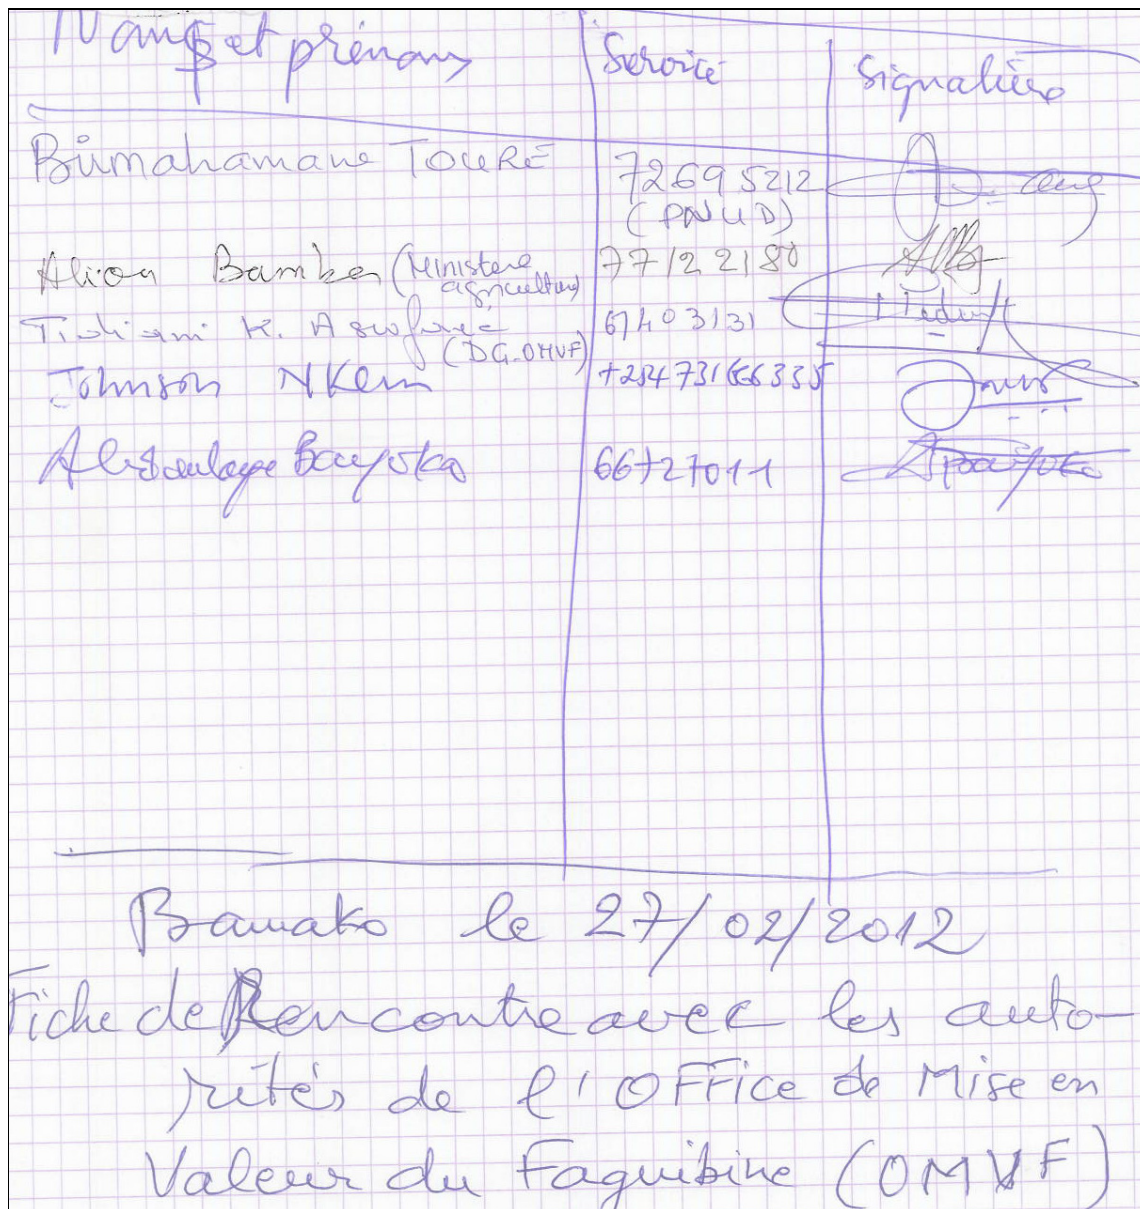 Noms et prénoms Service Signatures
Birmahamane TOURÉ 72695212
(PNUD)
Alioun Bamba (Ministère agriculture) 77122180
Tidiani K. (DG-OMVF) 67403131
Johnson NKem +254731666335
Abdoulaye Bayoko 66727011
Bamako le 27/02/2012
Fiche de Rencontre avec les auto-
rités de l'OFFice de Mise en
Valeur du Faguibine (OMVF)